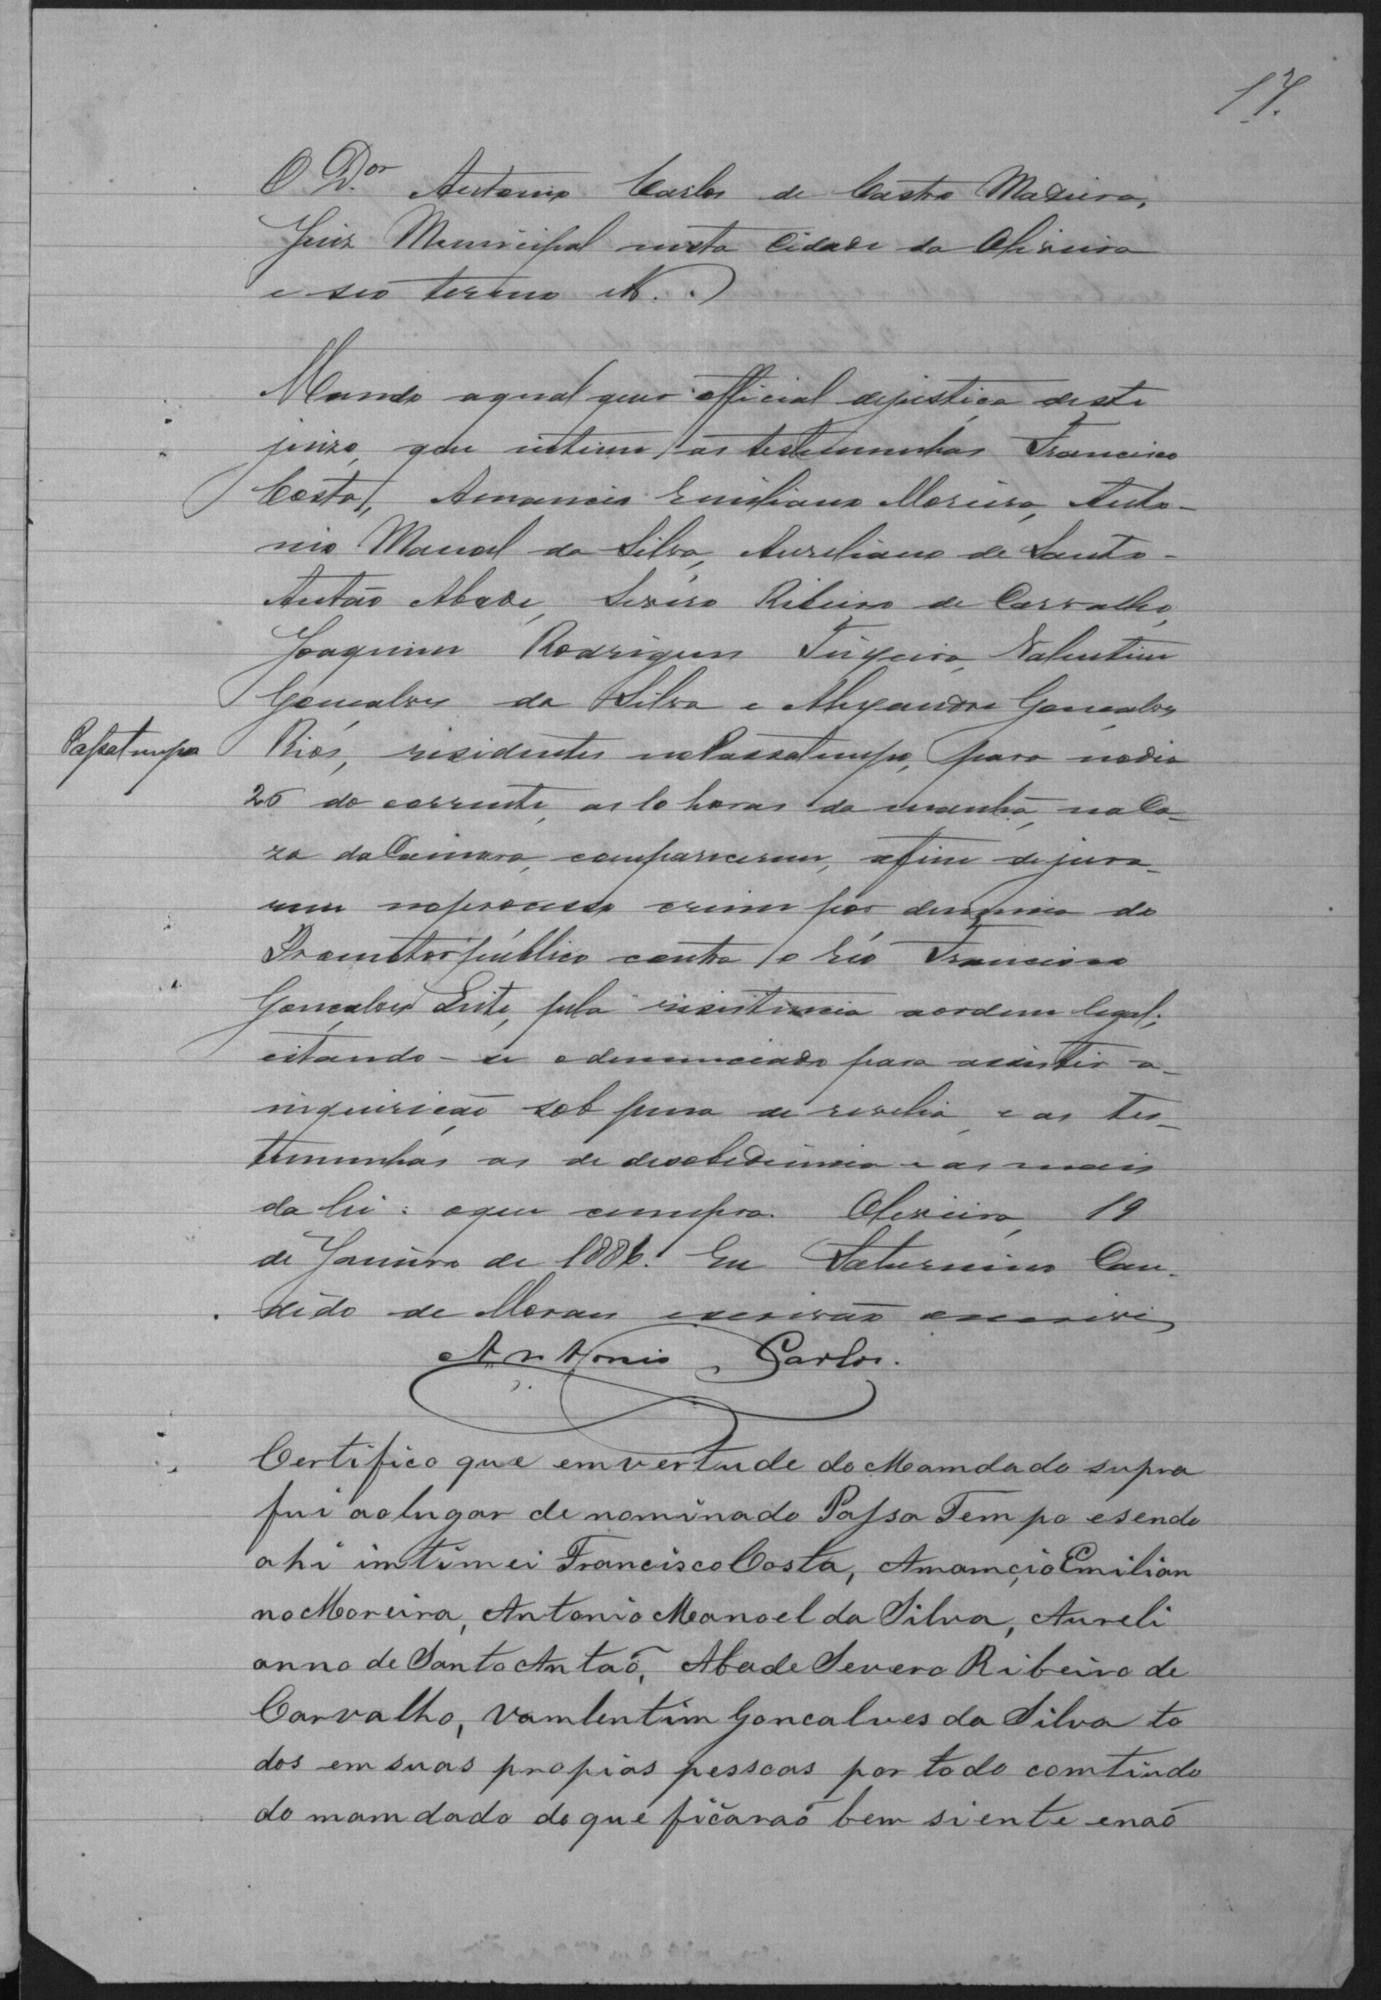 17.
O D.or Antonio Carlos de Castro Madeira,
Juiz Municipal nesta Cidade da Oliveira
e seo termo &.
Mando aqual quer official dejustiça deste
juizo, que intime as testemunhas Francisco
Costa, Amancio Emiliano Moreira, Anto-
nio Manoel da Silva, Aureliano de Santo-
Antão Abade, Severo Ribeiro de Carvalho,
Joaquim Rodrigues Teixeira, Valentim
Gonçalves da Silva e Alexandre Gonçalves
Passatempo
Rios, residentes noPassatempo, para nodia
25 do corrente, as 10 horas da manhã, naCa-
za daCamara, comparecerem, afim dejura-
rem noprocesso crime por denuncia do
Promotor publico contra o réo Francisco
Gonçalves Leite, pela resistencia aordem legal;
citando-se odenunciado para assistir a-
inquirição sob pena de revelia, e as tes-
temunhas as de desobediencia e as mais
da lei: oque cumpra. Oliveira, 19
de Janeiro de 1886. Eu Saturnino Can-
dido de Moraes escrivão escrevi
Antonio Carlos.
Certifico que emvertude do Mamdado supra
fui aolugar denominado Passa Tempo esendo
ahi imtimei FranciscoCosta, AmamçioEmilian
noMoreira, Antonio Manoel da Silva, Aureli
anno de SantoAntaõ, Abade Severo Ribeiro de
Carvalho, Vamlentim Goncalves da Silva to
dos em suas propias pessoas por todo comtiudo
do mamdado doque ficaraõ bem siente enaõ